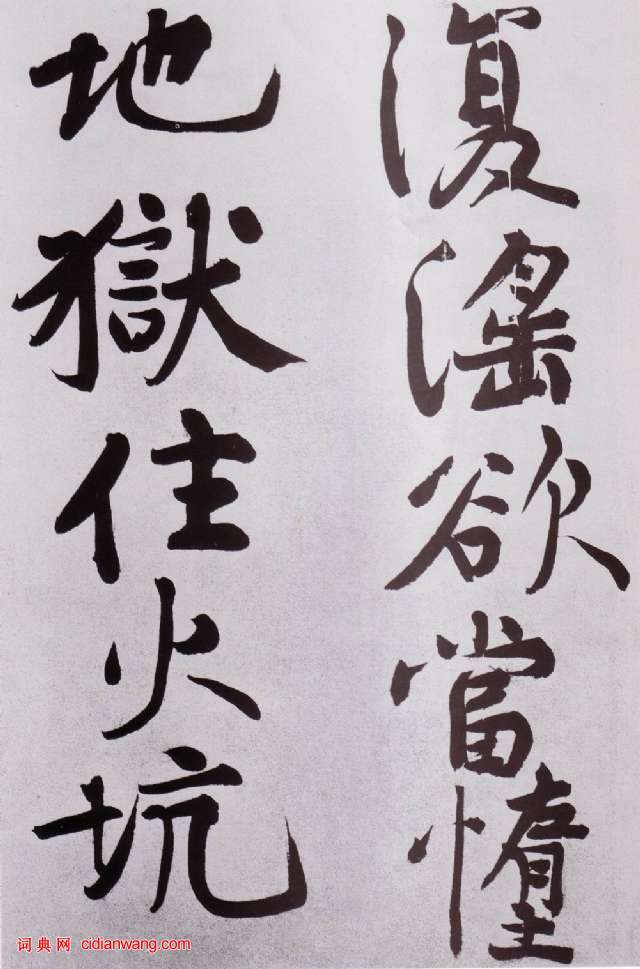 復滛欲當墯
地獄住火坑
词典网 cidianwang.com